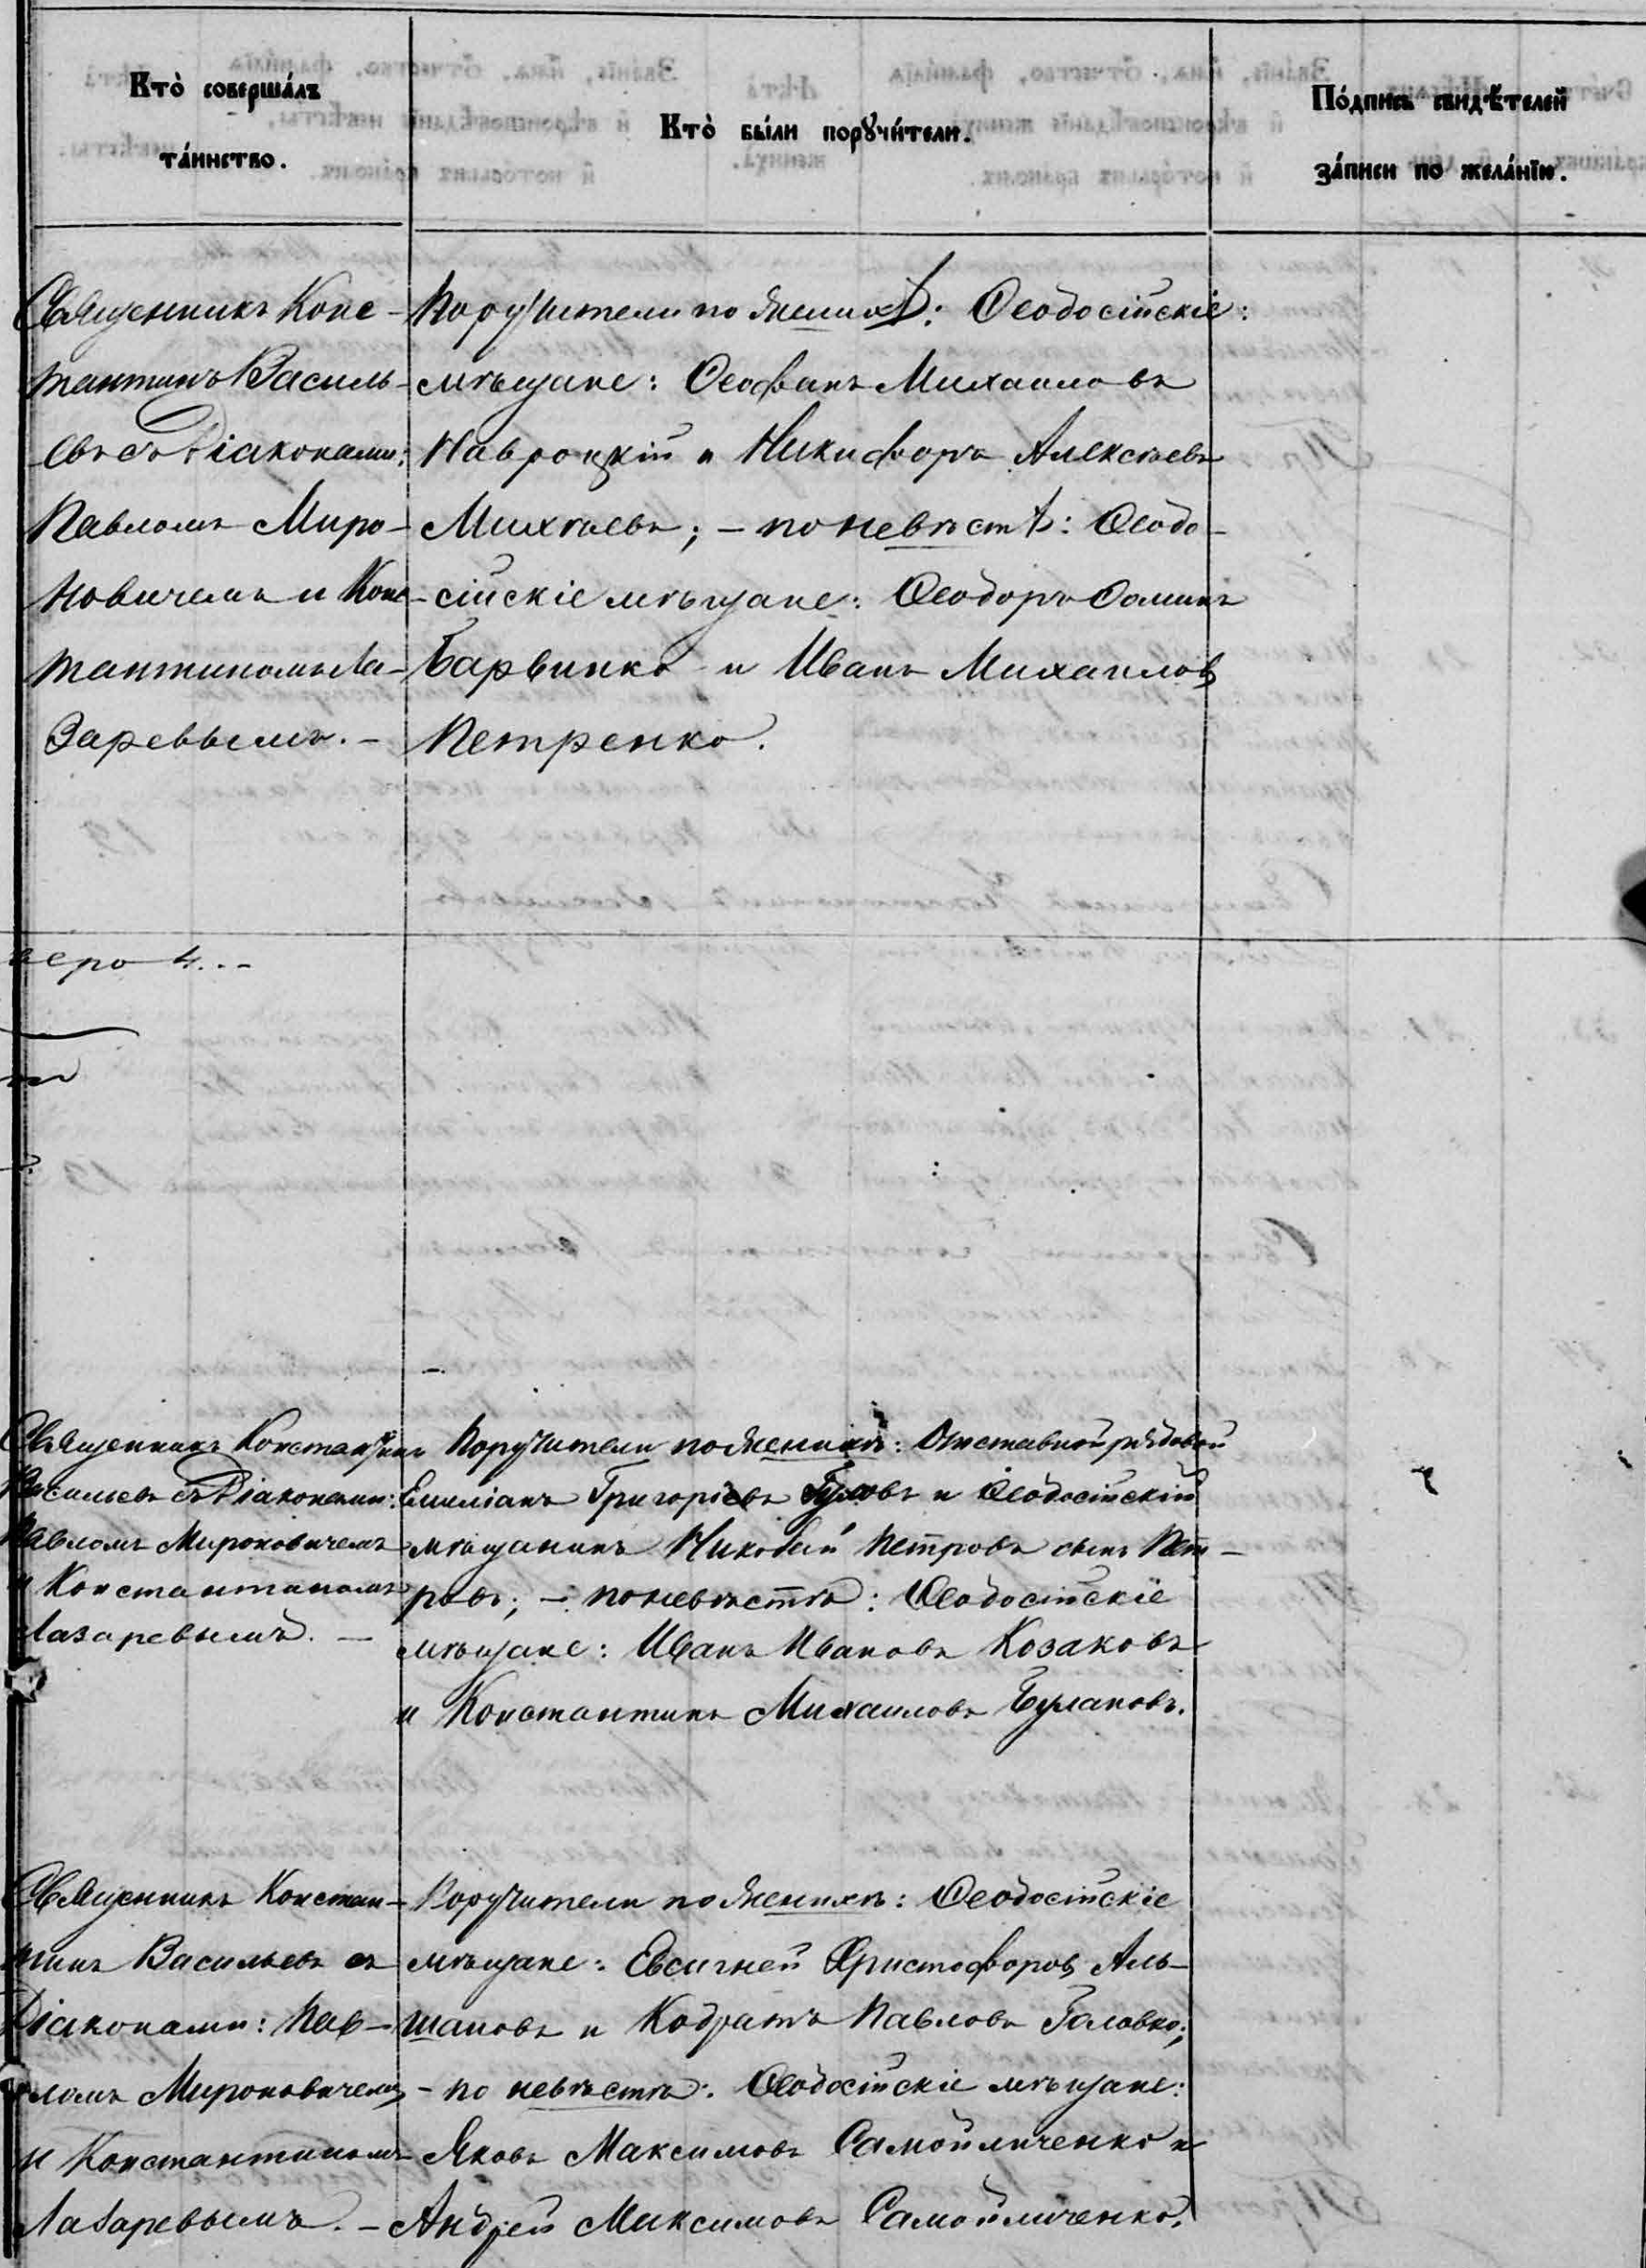 Кто̀ соверша́лъ
та́инство.
Кто̀ бы́ли порꙋчи́тели.
По́дпись свидѣ́телей
за́писи по жела́нїю.
Священникъ Конс-
тантинъ Василь-
евъ съ Діаконами:
Павломъ Миро-
новичемъ и Конс-
тантиномъ Ла-
заревымъ. –
Поручители по женихѣ: Ѳеодосійскіе:
мѣщане: Ѳеофанъ Михаиловъ
Навроцкій и Никифоръ Алексѣевъ
Михѣевъ; – по невѣстѣ: Ѳеодо-
сійскіе мѣщане: Ѳеодоръ Ѳоминъ
Барвинко и Иванъ Михаиловъ
Петренко.
Священникъ Константинъ
Васильевъ съ Діаконами:
Павломъ Мироновичемъ
и Константиномъ
Лазаревымъ. –
Поручители по женихѣ: Отставной рядовой
Емиліанъ Григоріевъ и Ѳеодосійскій
мѣщанинъ Петровъ сынъ Пет-
ровъ; – по невѣстѣ: Ѳеодосійскіе
мѣщане: Иванъ Ивановъ Козаковъ
и Константинъ Михаиловъ Булановъ.
Священникъ Констан-
тинъ Васильевъ съ
Діаконами: Пав-
ломъ Мироновичемъ
и Константиномъ
Лазаревымъ. –
Поручители по женихѣ: Ѳеодосійскіе
мѣщане: Евсигней Христофоровъ Аль-
шановъ и Кодратъ Павловъ Головко;
– по невѣстѣ: Ѳеодосійскіе мѣщане:
Яковъ Максимовъ Самойличенко и
Андрей Максимовъ Самойличенко.